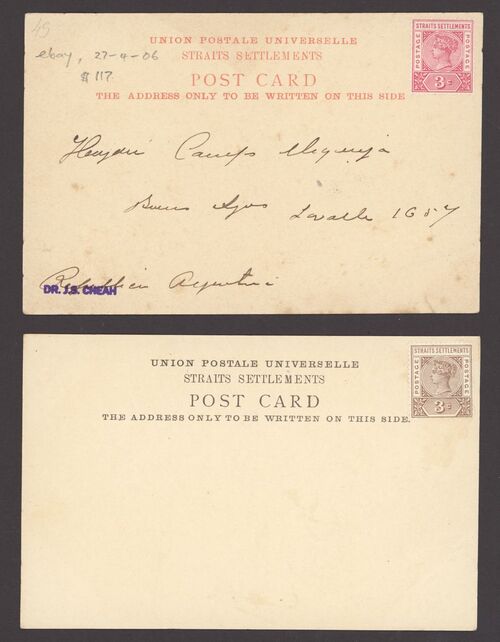 45
ebay, 27-4-06
$117
UNION POSTALE UNIVERSELLE
STRAITS SETTLEMENTS
POST CARD
THE ADDRESS ONLY TO BE WRITTEN ON THIS SIDE
STRAITS SETTLEMENTS
POSTAGE
POSTAGE
3c
Camps
Buenos Ayres Lavalle 1657
Argentina
DR. J.S. CHEAH
UNION POSTALE UNIVERSELLE
STRAITS SETTLEMENTS
POST CARD
THE ADDRESS ONLY TO BE WRITTEN ON THIS SIDE.
STRAITS SETTLEMENTS
POSTAGE
POSTAGE
3c